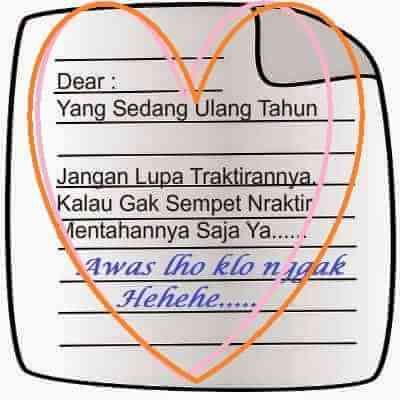 Dear :
Yang Sedang Ulang Tahun
Jangan Lupa Traktirannya.
Kalau Gak Sempet Nraktir
Mentahannya Saja Ya......
Awas lho klo nggak
Hehehe.....